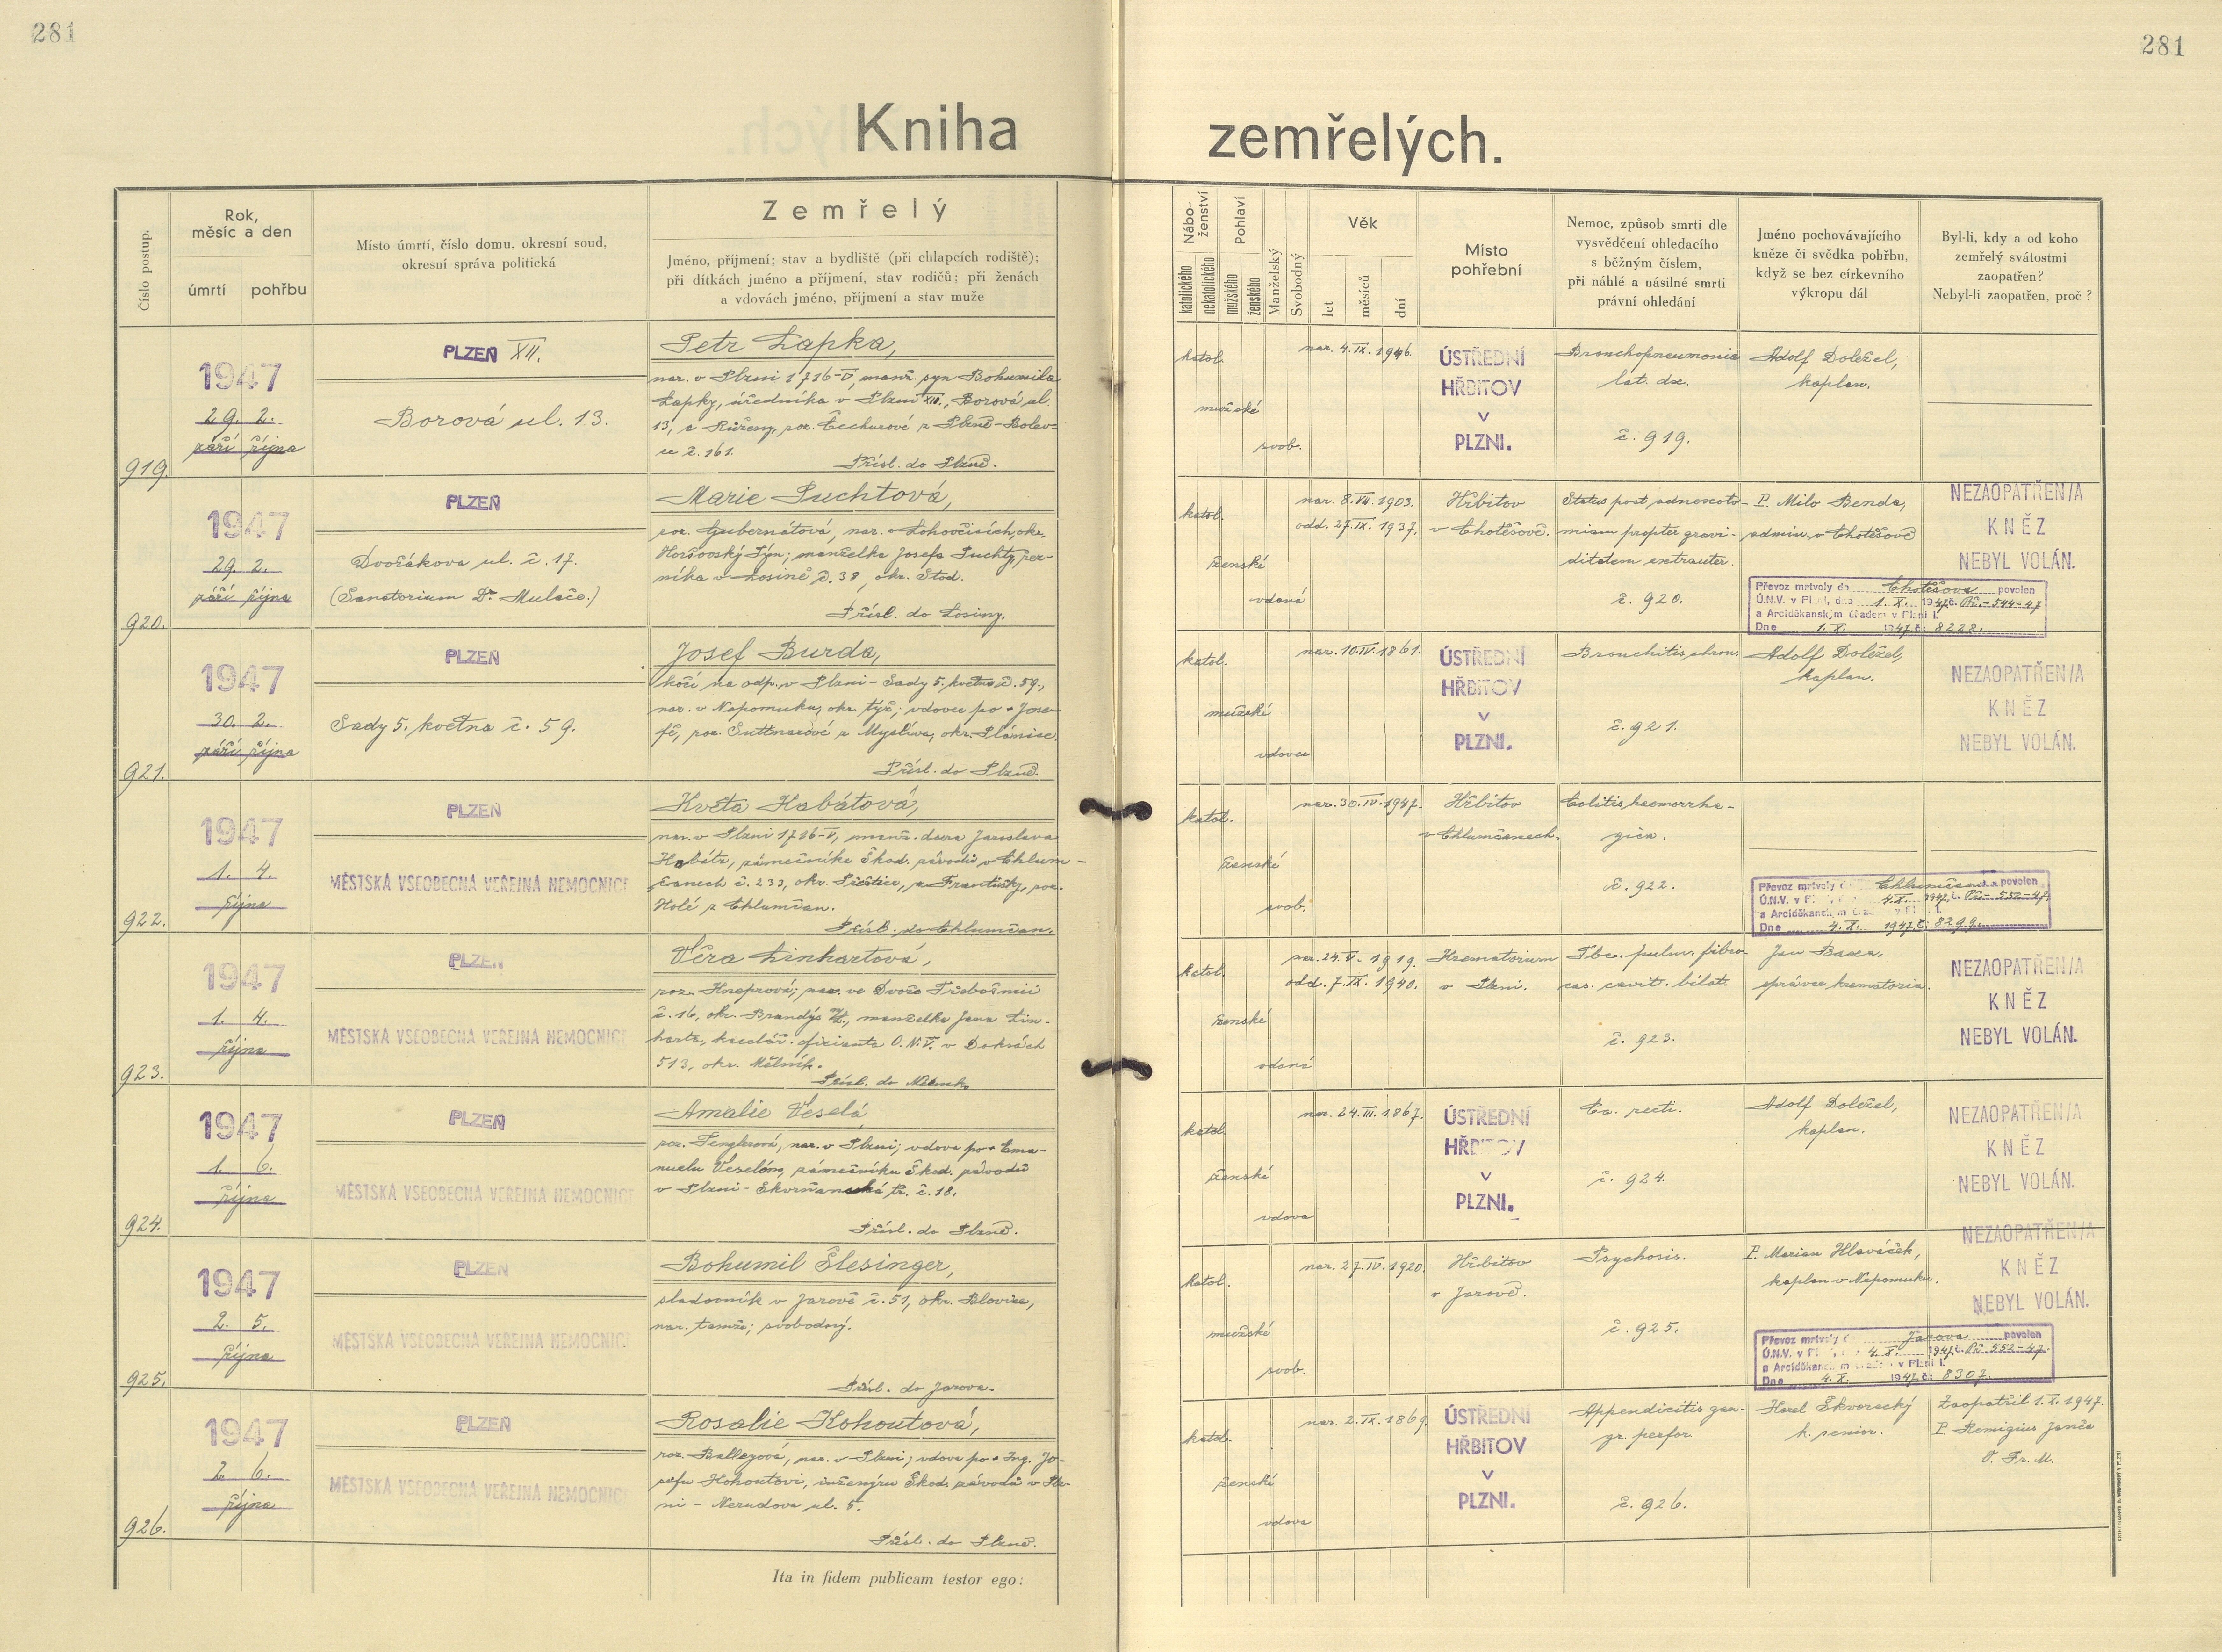 281
281
Kniha zemřelých.
Číslo postup.
Rok,
měsíc a den
úmrtí
pohřbu
Místo úmrtí, číslo domu, okresní soud,
okresní správa politická
Zemřelý
Jméno, příjmení; stav a bydliště (při chlapcích rodiště);
při dítkách jméno a příjmení, stav rodičů; při ženách
a vdovách jméno, příjmení a stav muže
Nábo-
ženství
katolického
nekatolického
Pohlaví
mužského
ženského
Manželský
Svobodný
Věk
let
měsíců
dní
Místo
pohřební
Nemoc, způsob smrti dle
vysvědčení ohledacího
s běžným číslem,
při náhlé a násilné smrti
právní ohledání
Jméno pochovávajícího
kněze či svědka pohřbu,
když se bez církevního
výkropu dál
Byl-li, kdy a od koho
zemřelý svátostmi
zaopatřen?
Nebyl-li zaopatřen, proč?
919.
1947
29. 2.
září října
PLZEŇ XII.
Borová ul. 13.
Petr Lapka,
nar. v Plzni 1716-V, manž. syn Bohumila
Lapky, úředníka v Plzni XII., Borová ul.
13, a Růženy, roz. Čechurové z Plzně-Bolev-
ce č. 161.
Přísl. do Plzně.
katol.
mužské
svob.
nar. 4. IX. 1946.
ÚSTŘEDNÍ
HŘBITOV
V
PLZNI.
Bronchopneumonia
lat. dx.
č. 919.
Adolf Doležel,
kaplan.
920.
1947
29. 2.
září října
PLZEŇ
Dvořákova ul. č. 17.
(Sanatorium Dr. Mulače.)
Marie Puchtová,
roz. Gubernátová, nar. v Lohovčicích, okr.
Horšovský Týn; manželka Josefa Puchty, řez-
níka v Losině č. 38, okr. Stod.
Přísl. do Losiny.
katol.
ženské
vdaná
nar. 8. VII. 1903.
odd. 27. IX. 1937.
Hřbitov
v Chotěšově.
Status post adnexoto-
miam propter gravi-
ditatem extrauter.
č. 920.
P. Milo Benda,
admin. v Chotěšově
NEZAOPATŘEN/A
KNĚZ
NEBYL VOLÁN.
Převoz mrtvoly do Chotěšova povolen
Ú.N.V. v Plzni, dne 1. X. 1947 č. Př.-544-47
a Arciděkanským úřadem v Plzni I.
Dne 1. X. 1947 č. 8228.
921.
1947
30. 2.
září října
PLZEŇ
Sady 5. května č. 59.
Josef Burda,
kočí na odp. v Plzni-Sady 5. května č. 59,
nar. v Nepomuku, okr. týž; vdovec po + Jose-
fě, roz. Suttnarové z Myslíva, okr. Plánice.
Přísl. do Plzně.
katol.
mužské
vdovec
nar. 10. IV. 1861.
ÚSTŘEDNÍ
HŘBITOV
V
PLZNI.
Bronchitis chron.
č. 921.
Adolf Doležel,
kaplan.
NEZAOPATŘEN/A
KNĚZ
NEBYL VOLÁN.
922.
1947
1. 4.
října
PLZEŇ
MĚSTSKÁ VŠEOBECNÁ VEŘEJNÁ NEMOCNICE
Květa Habátová,
nar. v Plzni 1726-V, manž. dcera Jaroslava
Habáta, zámečníka Škod. závodů v Chlum-
čanech č. 233, okr. Přeštice, a Františky, roz.
Holé z Chlumčan.
Přísl. do Chlumčan.
katol.
ženské
svob.
nar. 30. IV. 1947.
Hřbitov
v Chlumčanech.
Colitis haemorrha-
gica.
č. 922.
Převoz mrtvoly do Chlumčan povolen
Ú.N.V. v Pl 4. X. 1947, č. Př.-552-47
a Arciděkanským úřadem v Plzni I.
Dne 4. X. 1947 č. 8299.
923.
1947
1. 4.
října
PLZEŇ
MĚSTSKÁ VŠEOBECNÁ VEŘEJNÁ NEMOCNICE
Věra Linhartová,
roz. Knoprová; nar. ve Dvoře Třebosmicí
č. 16, okr. Brandýs n/L., manželka Jana Lin-
harta, kancelář. oficianta O.N.V. v Doksách
513, okr. Mělník.
Přísl. do
katol.
ženské
vdaná
nar. 24. V. 1919.
odd. 7. IX. 1940.
Krematorium
v Plzni.
Tbc. pulm. fibro-
cas. cavit. bilat.
č. 923.
Jan Baxa,
správce krematoria.
NEZAOPATŘEN/A
KNĚZ
NEBYL VOLÁN.
924.
1947
1. 6.
října
PLZEŇ
MĚSTSKÁ VŠEOBECNÁ VEŘEJNÁ NEMOCNICE
Amalie Veselá,
roz. Fenglerová, nar. v Plzni; vdova po + Ema-
nuelu Veselém, zámečníku Škod. závodů
v Plzni-Skvrňanská tř. č. 18.
Přísl. do Plzně.
katol.
ženské
vdova
nar. 24. III. 1867.
ÚSTŘEDNÍ
HŘBITOV
V
PLZNI.
Ca. recti.
č. 924.
Adolf Doležel,
kaplan.
NEZAOPATŘEN/A
KNĚZ
NEBYL VOLÁN.
925.
1947
2. 5.
října
PLZEŇ
MĚSTSKÁ VŠEOBECNÁ VEŘEJNÁ NEMOCNICE
Bohumil Šlesinger,
sladovník v Jarově č. 51, okr. Blovice,
nar. tamže; svobodný.
Přísl. do Jarova.
katol.
mužské
svob.
nar. 27. IV. 1920.
Hřbitov
v Jarově.
Psychosis.
č. 925.
P. Marian Hlaváček,
kaplan v Nepomuku.
NEZAOPATŘEN/A
KNĚZ
NEBYL VOLÁN.
Převoz mrtvoly do Jarova povolen
Ú.N.V. v Pl 4. X. 1947 č. Př. 552-47.
a Arciděkanským úřadem v Plzni I.
Dne 4. X. 1947 č. 8307.
926.
1947
2. 6.
října
PLZEŇ
MĚSTSKÁ VŠEOBECNÁ VEŘEJNÁ NEMOCNICE
Rosalie Kohoutová,
roz. Balleyová, nar. v Plzni; vdova po + Ing. Jo-
sefu Kohoutovi, inženýru Škod. závodů v Plz-
ni - Nerudova ul. 5.
Přísl. do Plzně.
katol.
ženské
vdova
nar. 2. IX. 1869.
ÚSTŘEDNÍ
HŘBITOV
V
PLZNI.
Appendicitis gan-
gr. perfor.
č. 926.
Karel Škvorecký
k. senior.
Zaopatřil 1. X. 1947.
P. Remigius Janča
O. Fr. M.
Ita in fidem publicam testor ego: